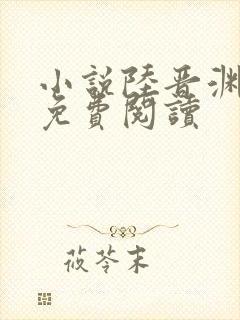 小說陸晋淵
免費閱讀
莜苓末